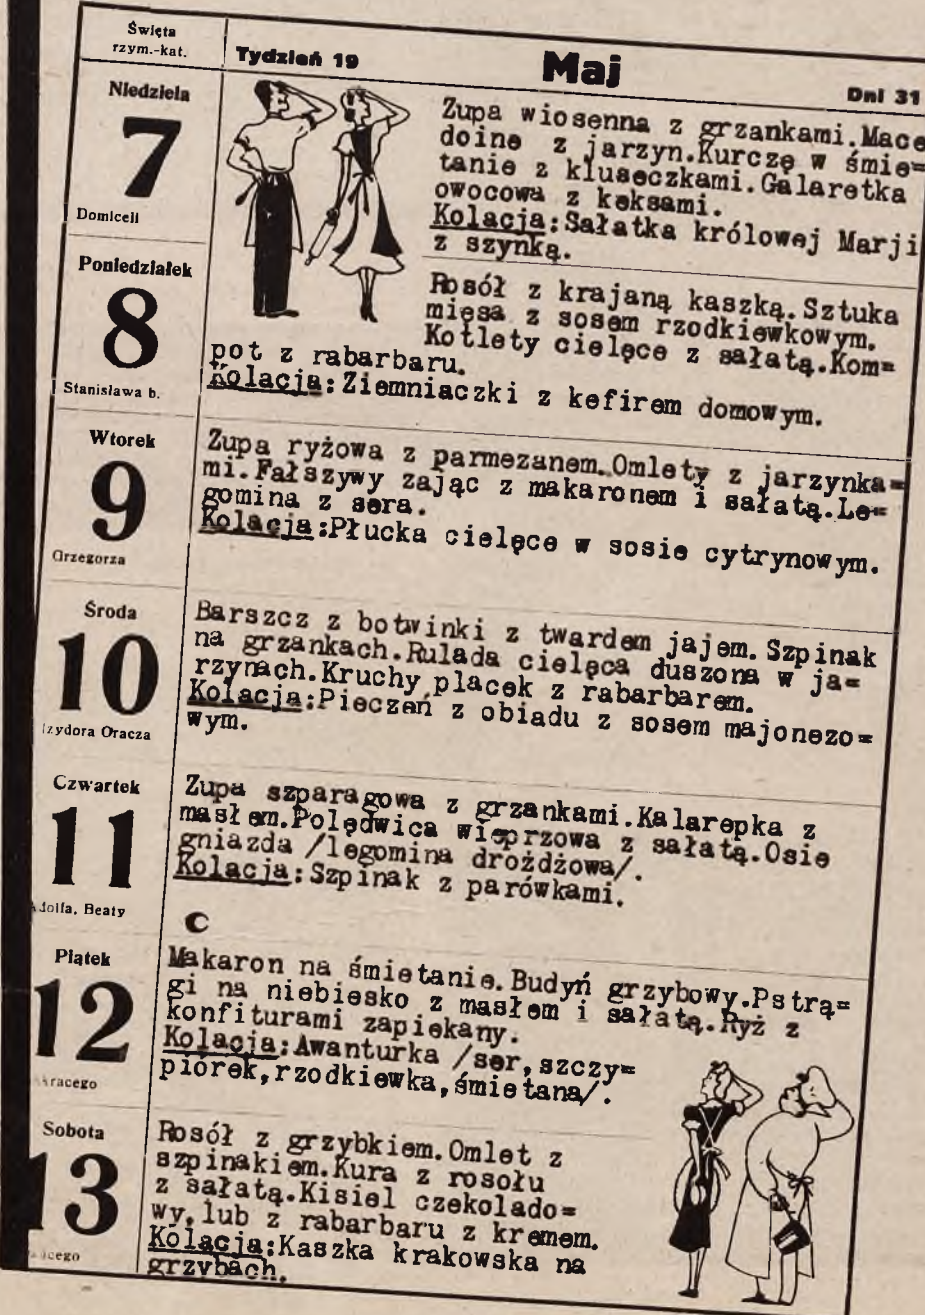 Święta
rzym.-kat.
Tydzień 19
Maj
Dni 31
Niedziela
7
Domiceli
Zupa wiosenna z grzankami.Mace
doine z jarzyn.Kurczę w śmie=
tanie z kluseczkami.Galaretka
owocowa z keksami.
Kolacja:Sałatka królowej Marji
z szynką.
Poniedziałek
8
Stanisława b.
Rosół z krajaną kaszką.Sztuka
mięsa z sosem rzodkiewkowym.
Kotlety cielęce z sałatą.Kom=
pot z rabarbaru.
Kolacja:Ziemniaczki z kefirem domowym.
Wtorek
9
Grzegorza
Zupa ryżowa z parmezanem.Omlety z jarzynka=
mi.Fałszywy zając z makaronem i sałatą.Le=
gomina z sera.
Kolacja:Płucka cielęce w sosie cytrynowym.
Środa
10
Izydora Oracza
Barszcz z botwinki z twardem jajem.Szpinak
na grzankach.Rulada cielęca duszona w ja=
rzynach.Kruchy placek z rabarbarem.
Kolacja:Pieczeń z obiadu z sosem majonezo=
wym.
Czwartek
11
Adolfa, Beaty
Zupa szparagowa z grzankami.Kalarepka z
masłem.Polędwica wieprzowa z sałatą.Osie
gniazda /legomina drożdżowa/.
Kolacja:Szpinak z parówkami.
Piątek
12
Makaron na śmietanie.Budyń grzybowy.Pstrą=
gi na niebiesko z masłem i sałatą.Ryż z
konfiturami zapiekany.
Kolacja:Awanturka /ser,szczy=
piórek,rzodkiewka,śmietana/.
Sobota
13
Rosół z grzybkiem.Omlet z
szpinakiem.Kura z rosołu
z sałatą.Kisiel czekolado=
wy,lub z rabarbaru z kremem.
Kolacja:Kaszka krakowska na
grzybach.